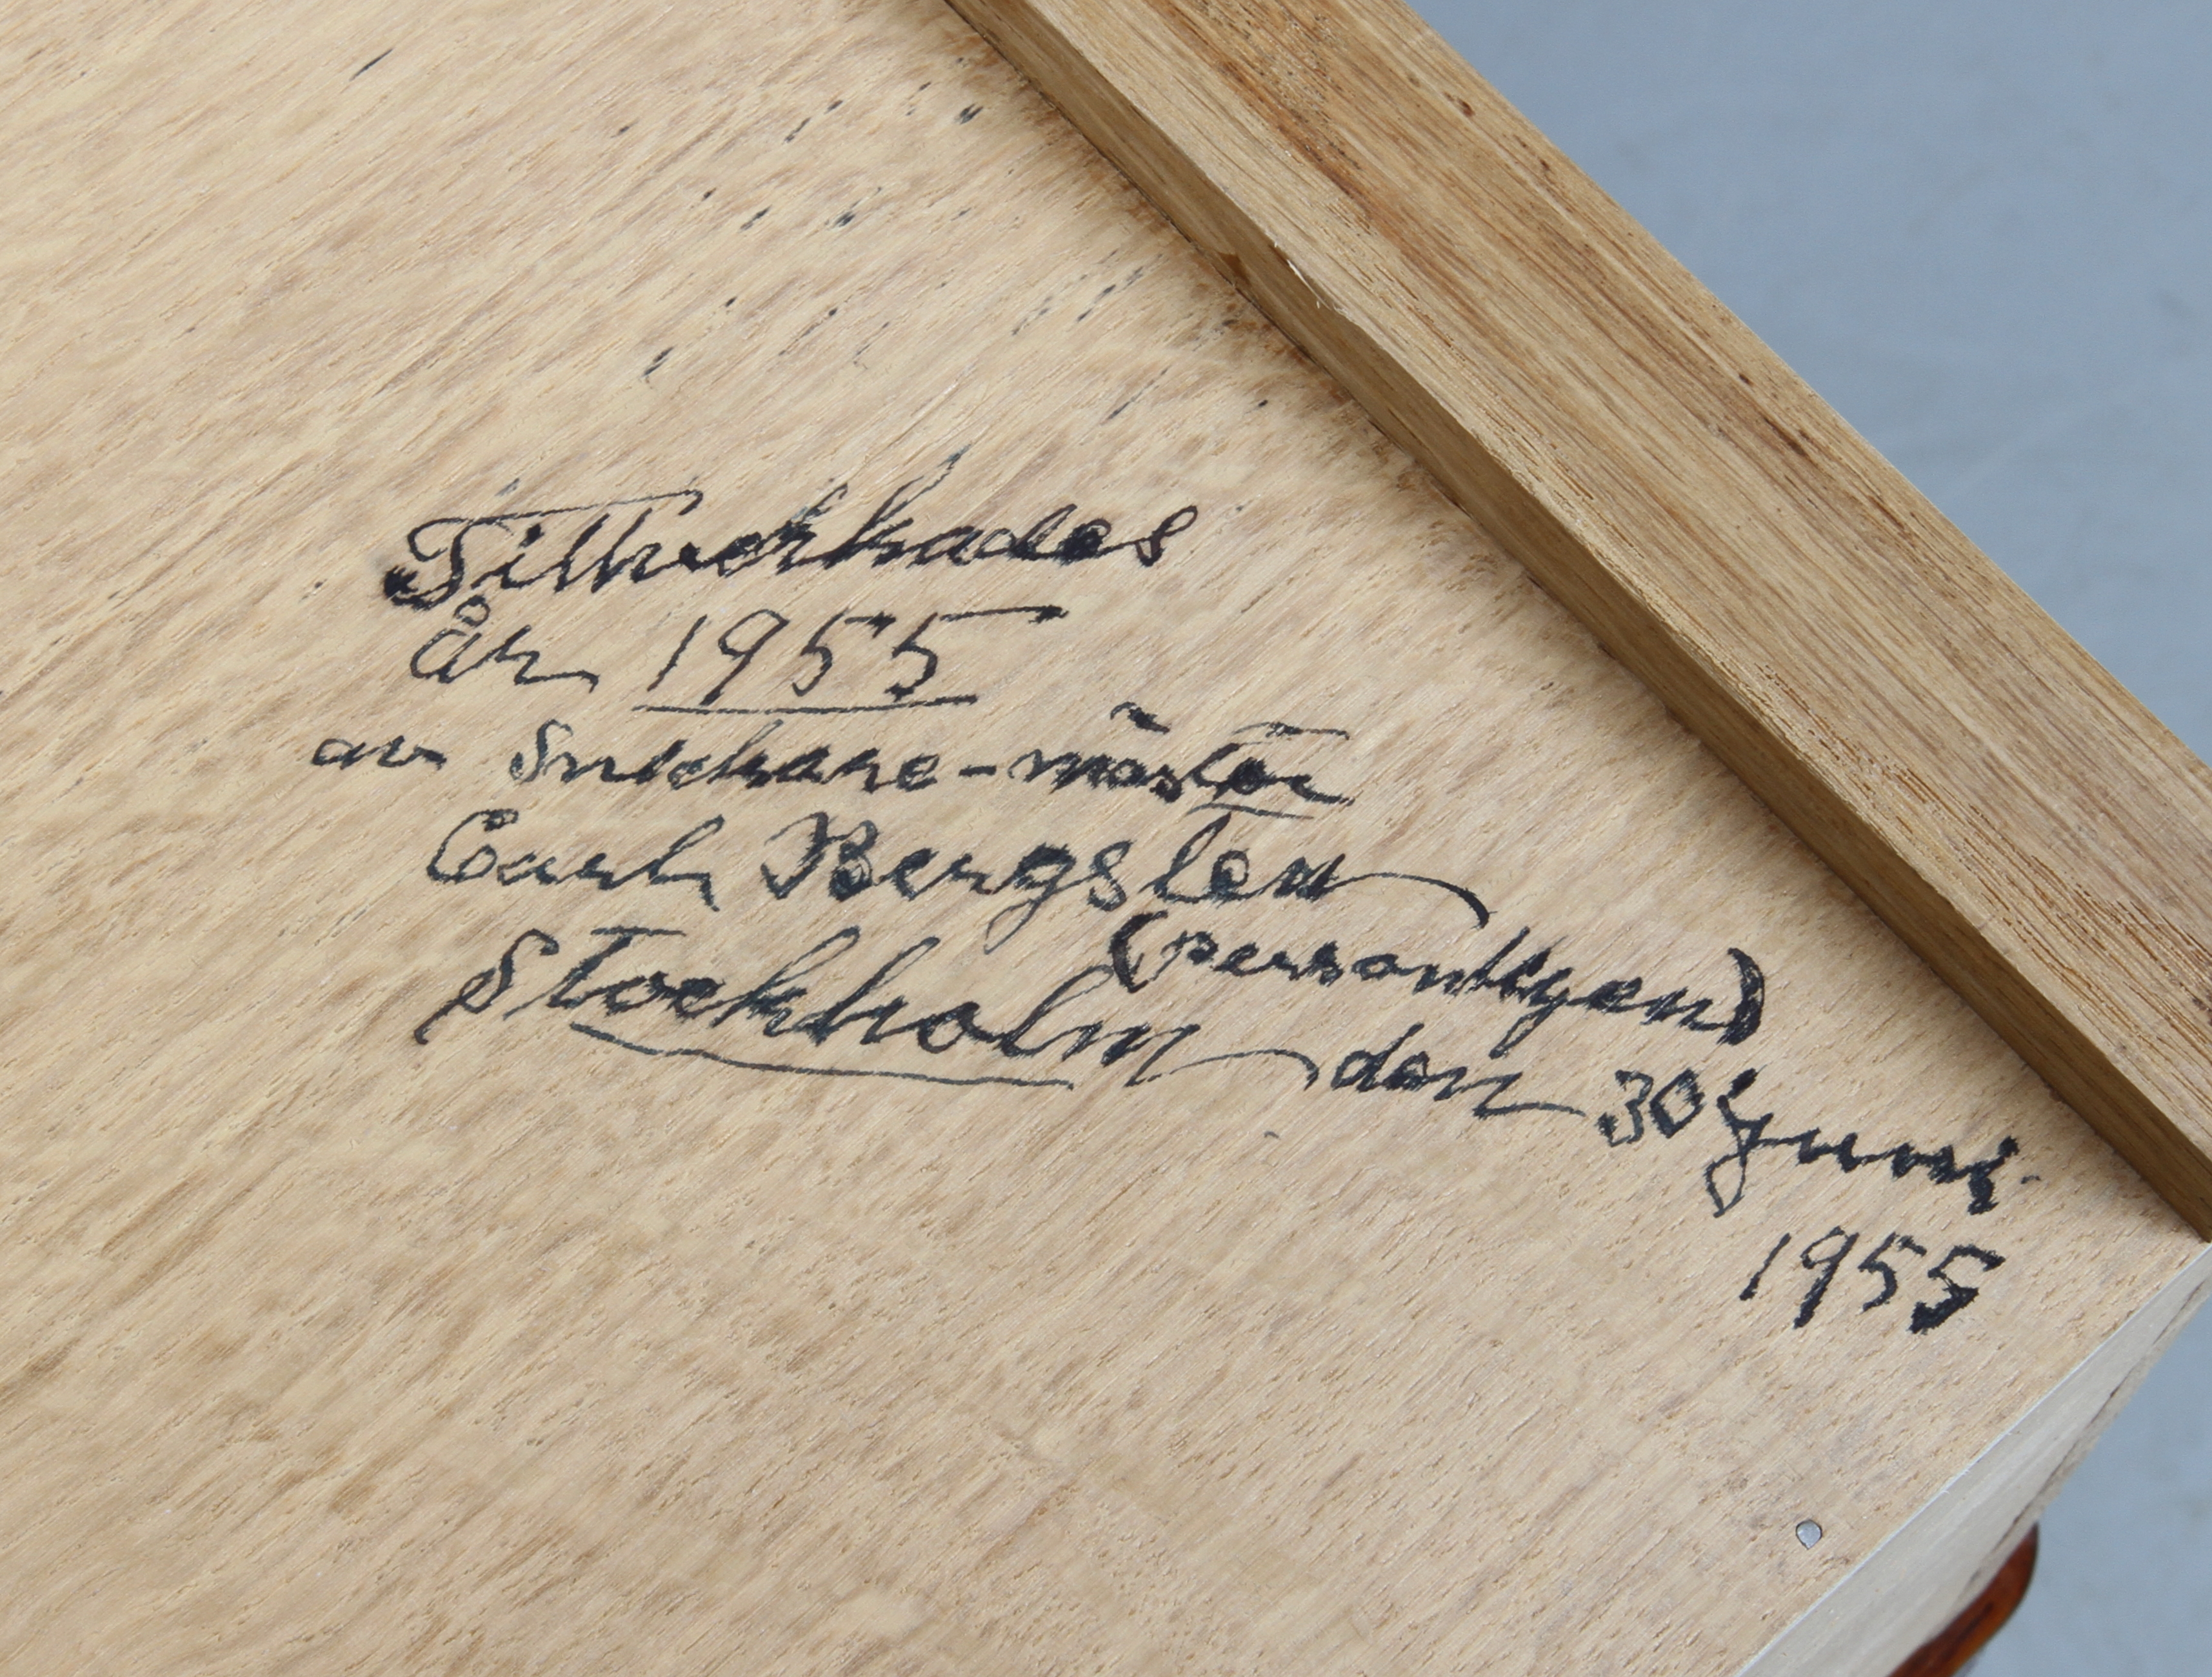 Tillverkades
år 1955
av Snickare-mäster
Carl Bergsten
(personligen)
Stockholm den 30 Juni
1955